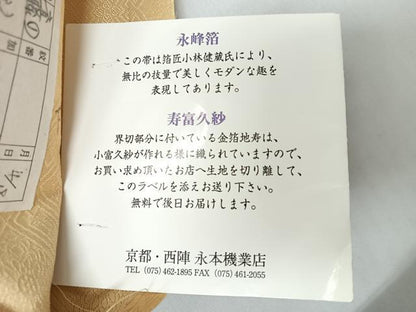 永峰箔
この帯は箔匠小林健蔵氏により、
無比の技量で美しくモダンな趣を
表現してあります。
寿富久紗
界切部分に付いている金箔地寿は、
小富久紗が作れる様に織られていますので、
お買い求め頂いたお店へ生地を切り離して、
このラベルを添えお送り下さい。
無料で後日お届けします。
京都・西陣 永本機業店
TEL (075) 462-1895 FAX (075) 461-2055
月
日